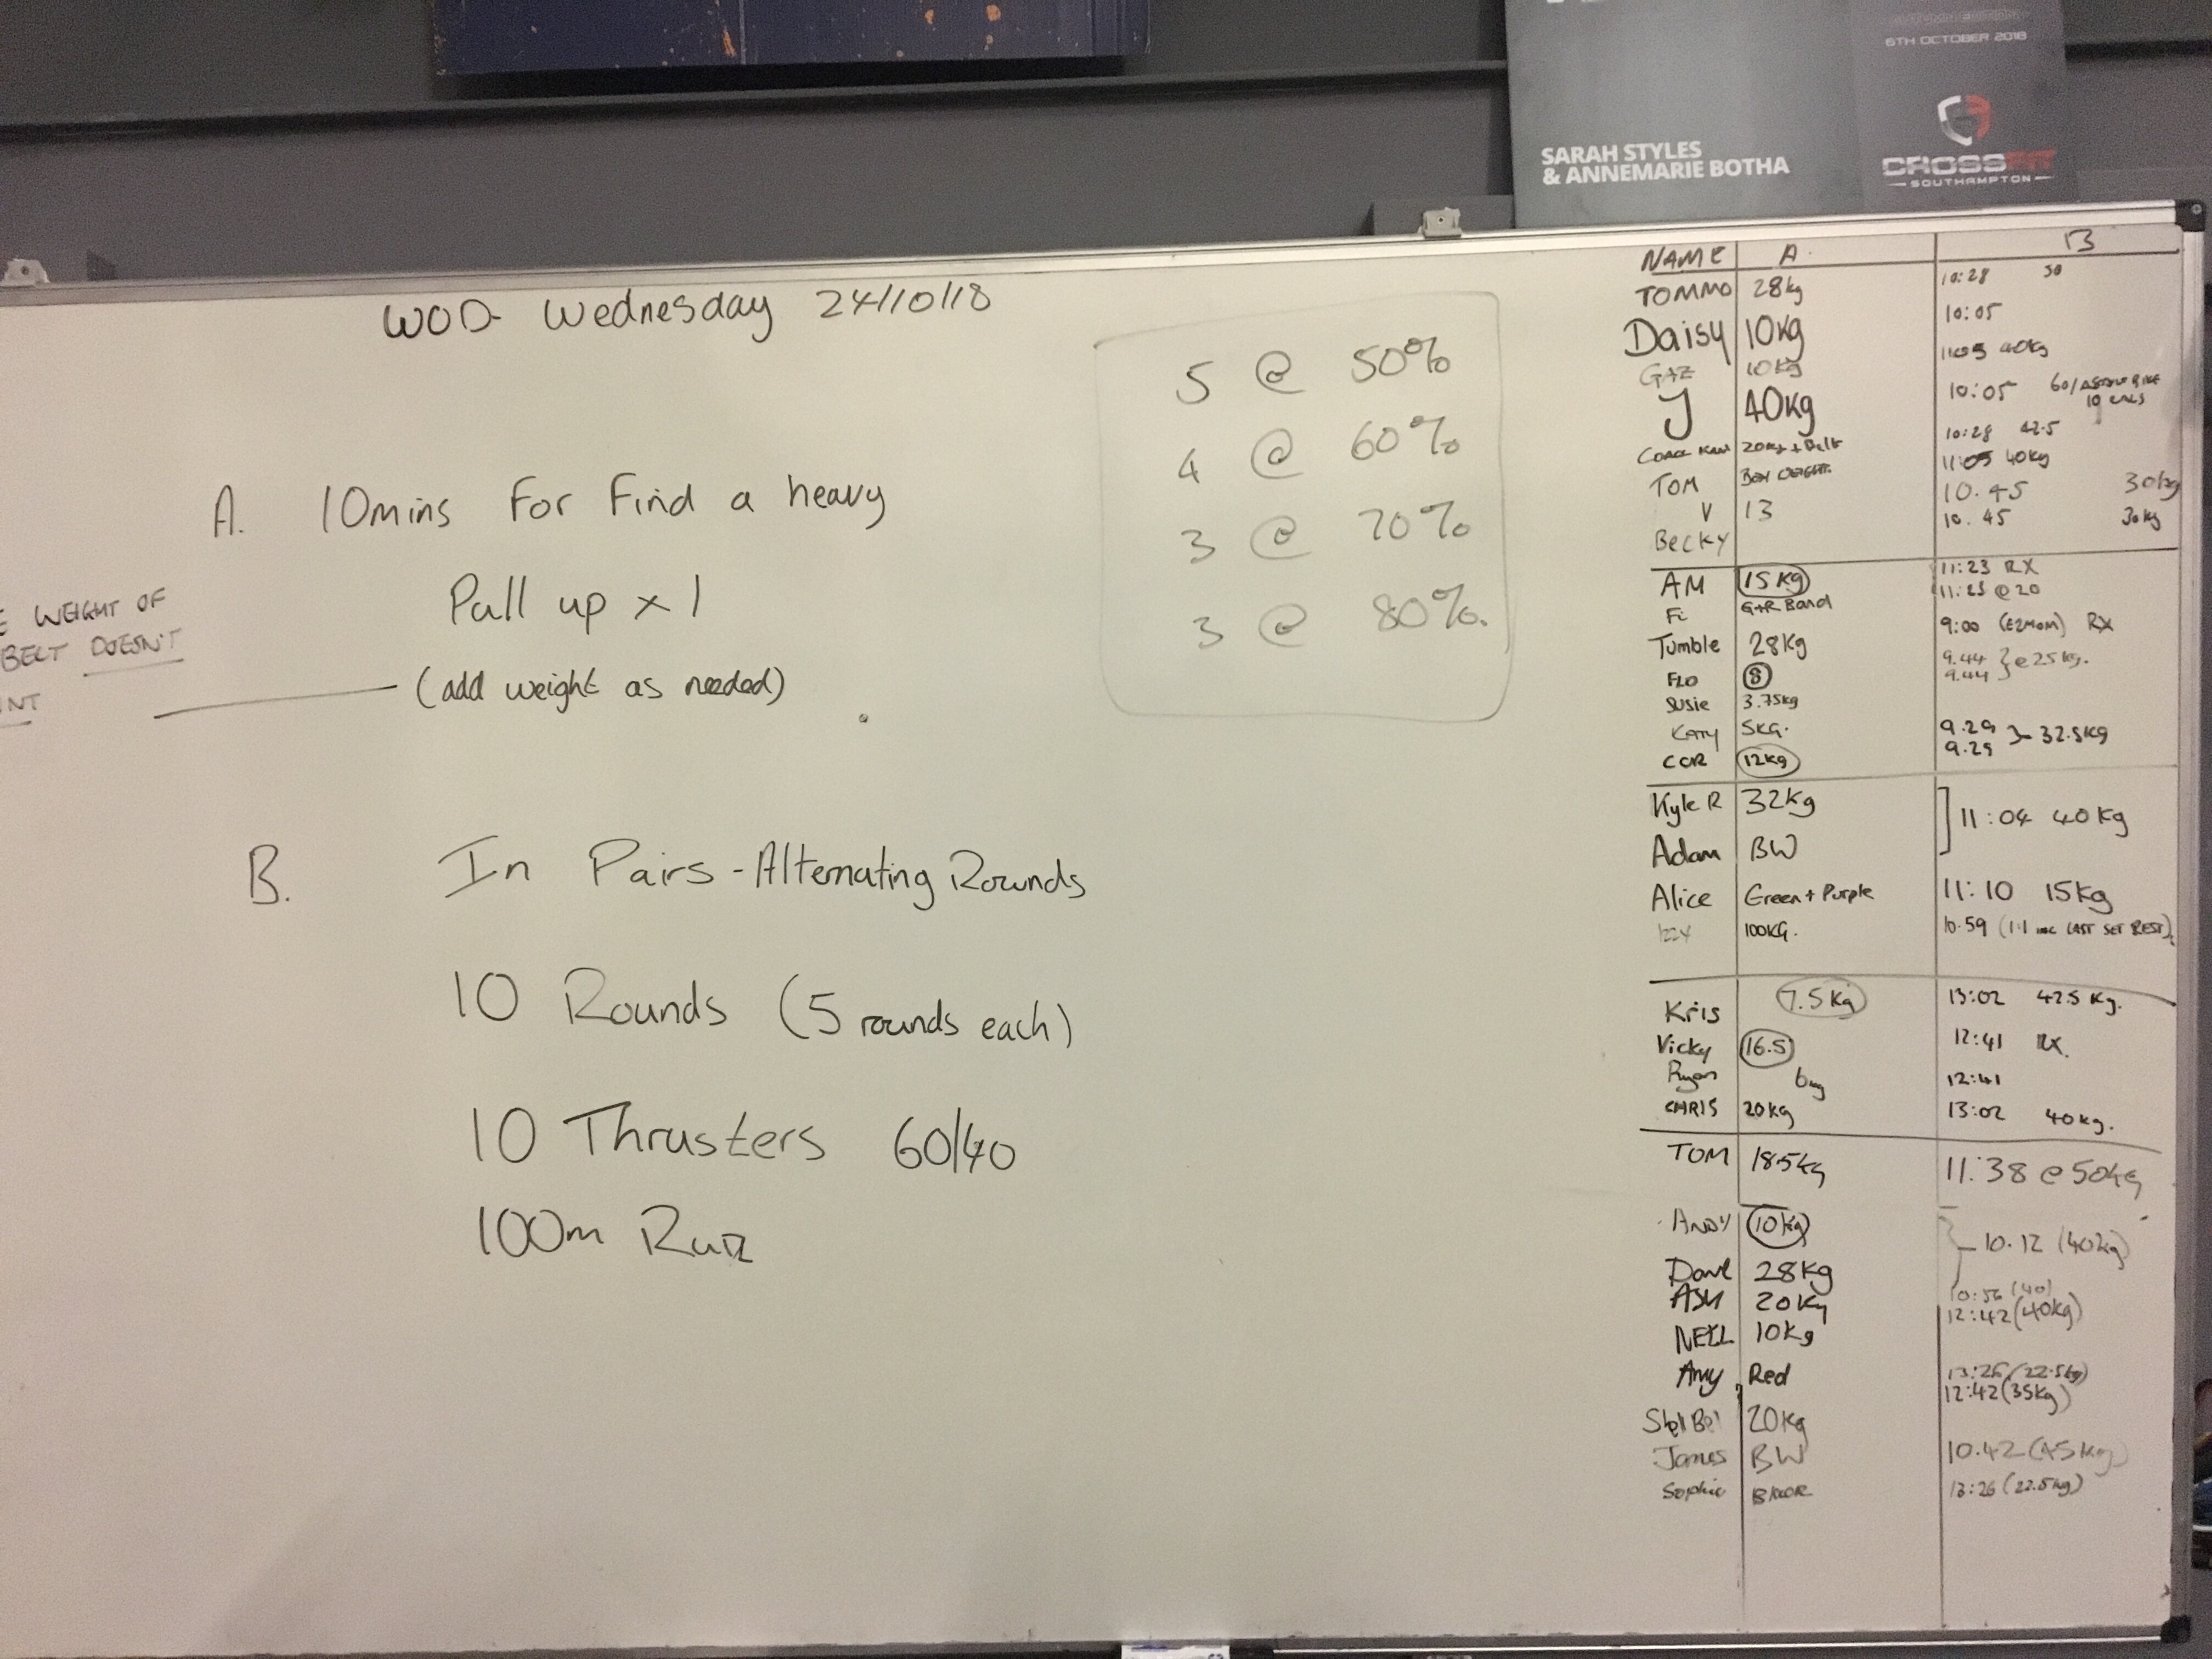 6TH OCTOBER 2018
SARAH STYLES
& ANNEMARIE BOTHA
CROSSFIT
SOUTHAMPTON
WOD Wednesday 24/10/18
A. 10mins For Find a heavy
Pull up x 1
(add weight as needed)
E WEIGHT OF
BELT DOESN'T
NT
B. In Pairs - Alternating Rounds
10 Rounds (5 rounds each)
10 Thrusters 60/40
100m Run
5 @ 50%
4 @ 60%
3 @ 70%
3 @ 80%.
NAME A. B
TOMMO 28kg 10:28 50
Daisy 10kg 10:05
GAZ 10kg 11:05 40kg
J 40kg 10:05 60/
10 CALS
COACH 20kg + Belt 10:28 42.5
TOM BODY WEIGHT. 11:05 40kg
V 13 10.45 30kg
Becky 10.45 30kg
AM 15kg 11:23 RX
Fi G+R Band 11:23 @ 20
Tumble 28kg 9:00 (E2MOM) RX
FLO 8 9.44 } @ 25kg.
Susie 3.75kg 9.44
KATY 5KG. 9.29 } 32.5kg
COR 12kg 9.29
Kyle R 32kg ] 11:04 40kg
Adam BW
Alice Green + Purple 11:10 15kg
Izzy 100KG. 10.59 (1:1 inc LAST SET REST)
Kris 7.5kg 13:02 42.5 Kg.
Vicky 16.5 12:41 RX.
Ryan 12:41
CHRIS 20kg 13:02 40kg.
TOM 18.5kg 11:38 @ 50kg
ANDY 10kg 10.12 (40kg)
Dave 28kg
ASH 20kg 10:56 (40)
NEIL 10kg 12:42 (40kg)
Amy Red 13:26 (22.5kg)
12:42 (35kg)
Stel Bel 20kg
James BW 10.42 (45kg)
Sophie 13:26 (22.5kg)